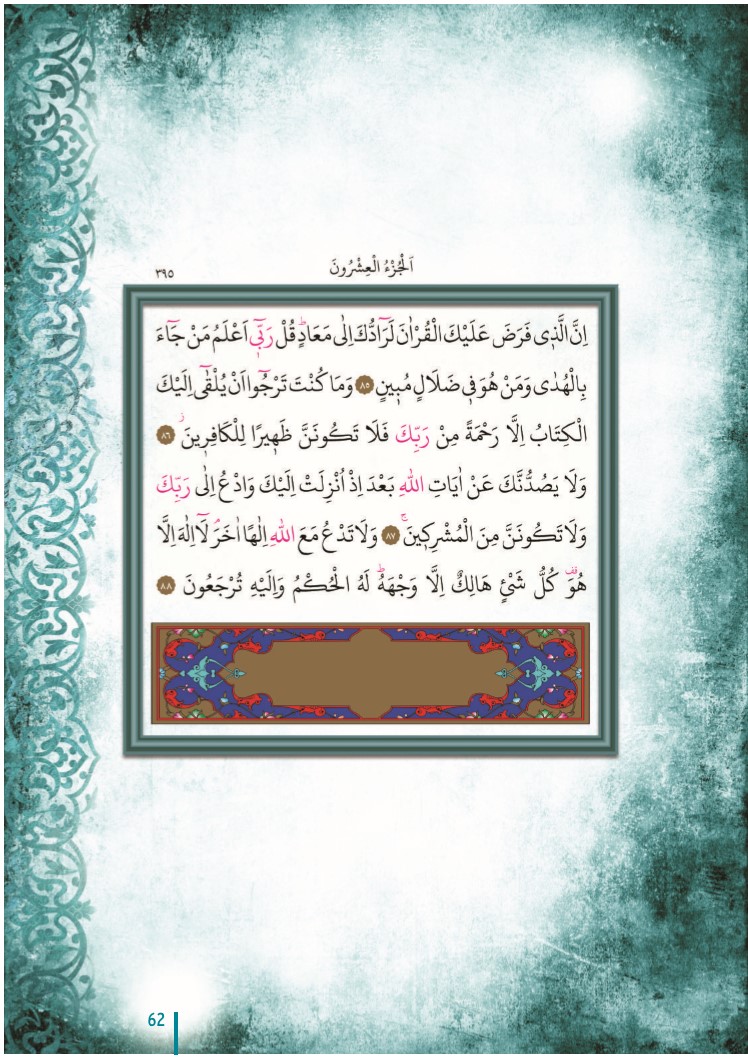 اَلْجُزْءُ الْعِشْرُونَ
٣٩٥
اِنَّ الَّذ۪ى فَرَضَ عَلَيْكَ الْقُرْاٰنَ لَرَٓادُّكَ اِلٰى مَعَادٍۜ قُلْ رَبّ۪ٓى اَعْلَمُ مَنْ جَٓاءَ
بِالْهُدٰى وَمَنْ هُوَ ف۪ى ضَلَالٍ مُب۪ينٍ ﴿٨٥﴾ وَمَا كُنْتَ تَرْجُٓوا اَنْ يُلْقٰٓى اِلَيْكَ
الْكِتَابُ اِلَّا رَحْمَةً مِنْ رَبِّكَ فَلَا تَكُونَنَّ ظَه۪يرًا لِلْكَافِر۪ينَۘ ﴿٨٦﴾
وَلَا يَصُدُّنَّكَ عَنْ اٰيَاتِ اللّٰهِ بَعْدَ اِذْ اُنْزِلَتْ اِلَيْكَ وَادْعُ اِلٰى رَبِّكَ
وَلَا تَكُونَنَّ مِنَ الْمُشْرِك۪ينَۚ ﴿٨٧﴾ وَلَا تَدْعُ مَعَ اللّٰهِ اِلٰهًا اٰخَرَۢ لَٓا اِلٰهَ اِلَّا
هُوَ۠ كُلُّ شَىْءٍ هَالِكٌ اِلَّا وَجْهَهُۜ لَهُ الْحُكْمُ وَاِلَيْهِ تُرْجَعُونَ ﴿٨٨﴾
62